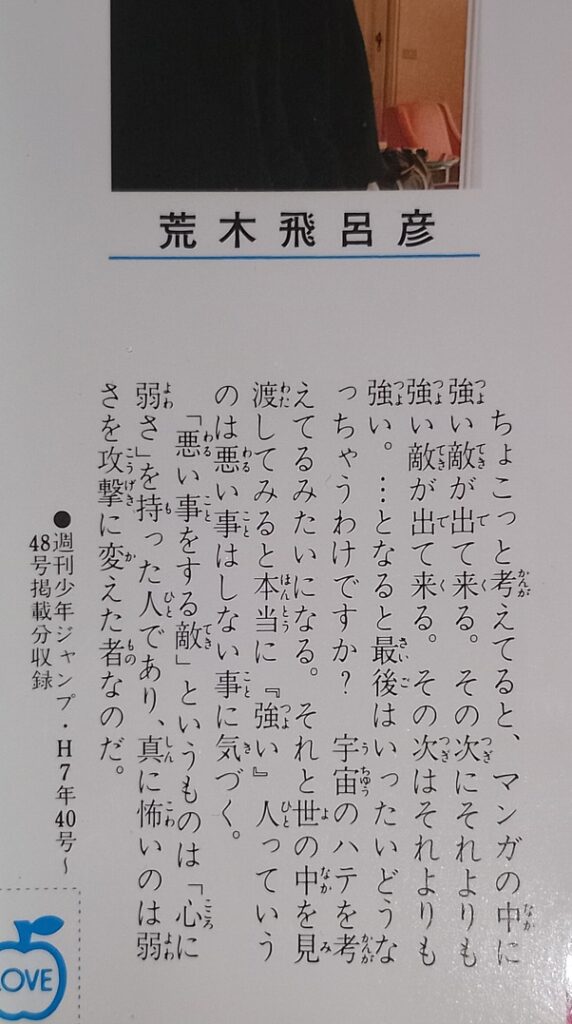 荒木飛呂彦
ちょこっと考えてると、マンガの中に
強い敵が出て来る。その次にそれよりも
強い敵が出て来る。その次はそれよりも
強い。…となると最後はいったいどうな
っちゃうわけですか？　宇宙のハテを考
えてるみたいになる。それと世の中を見
渡してみると本当に『強い』人っていう
のは悪い事はしない事に気づく。
「悪い事をする敵」というものは「心に
弱さ」を持った人であり、真に怖いのは弱
さを攻撃に変えた者なのだ。
●週刊少年ジャンプ・H7年40号～
48号掲載分収録
LOVE